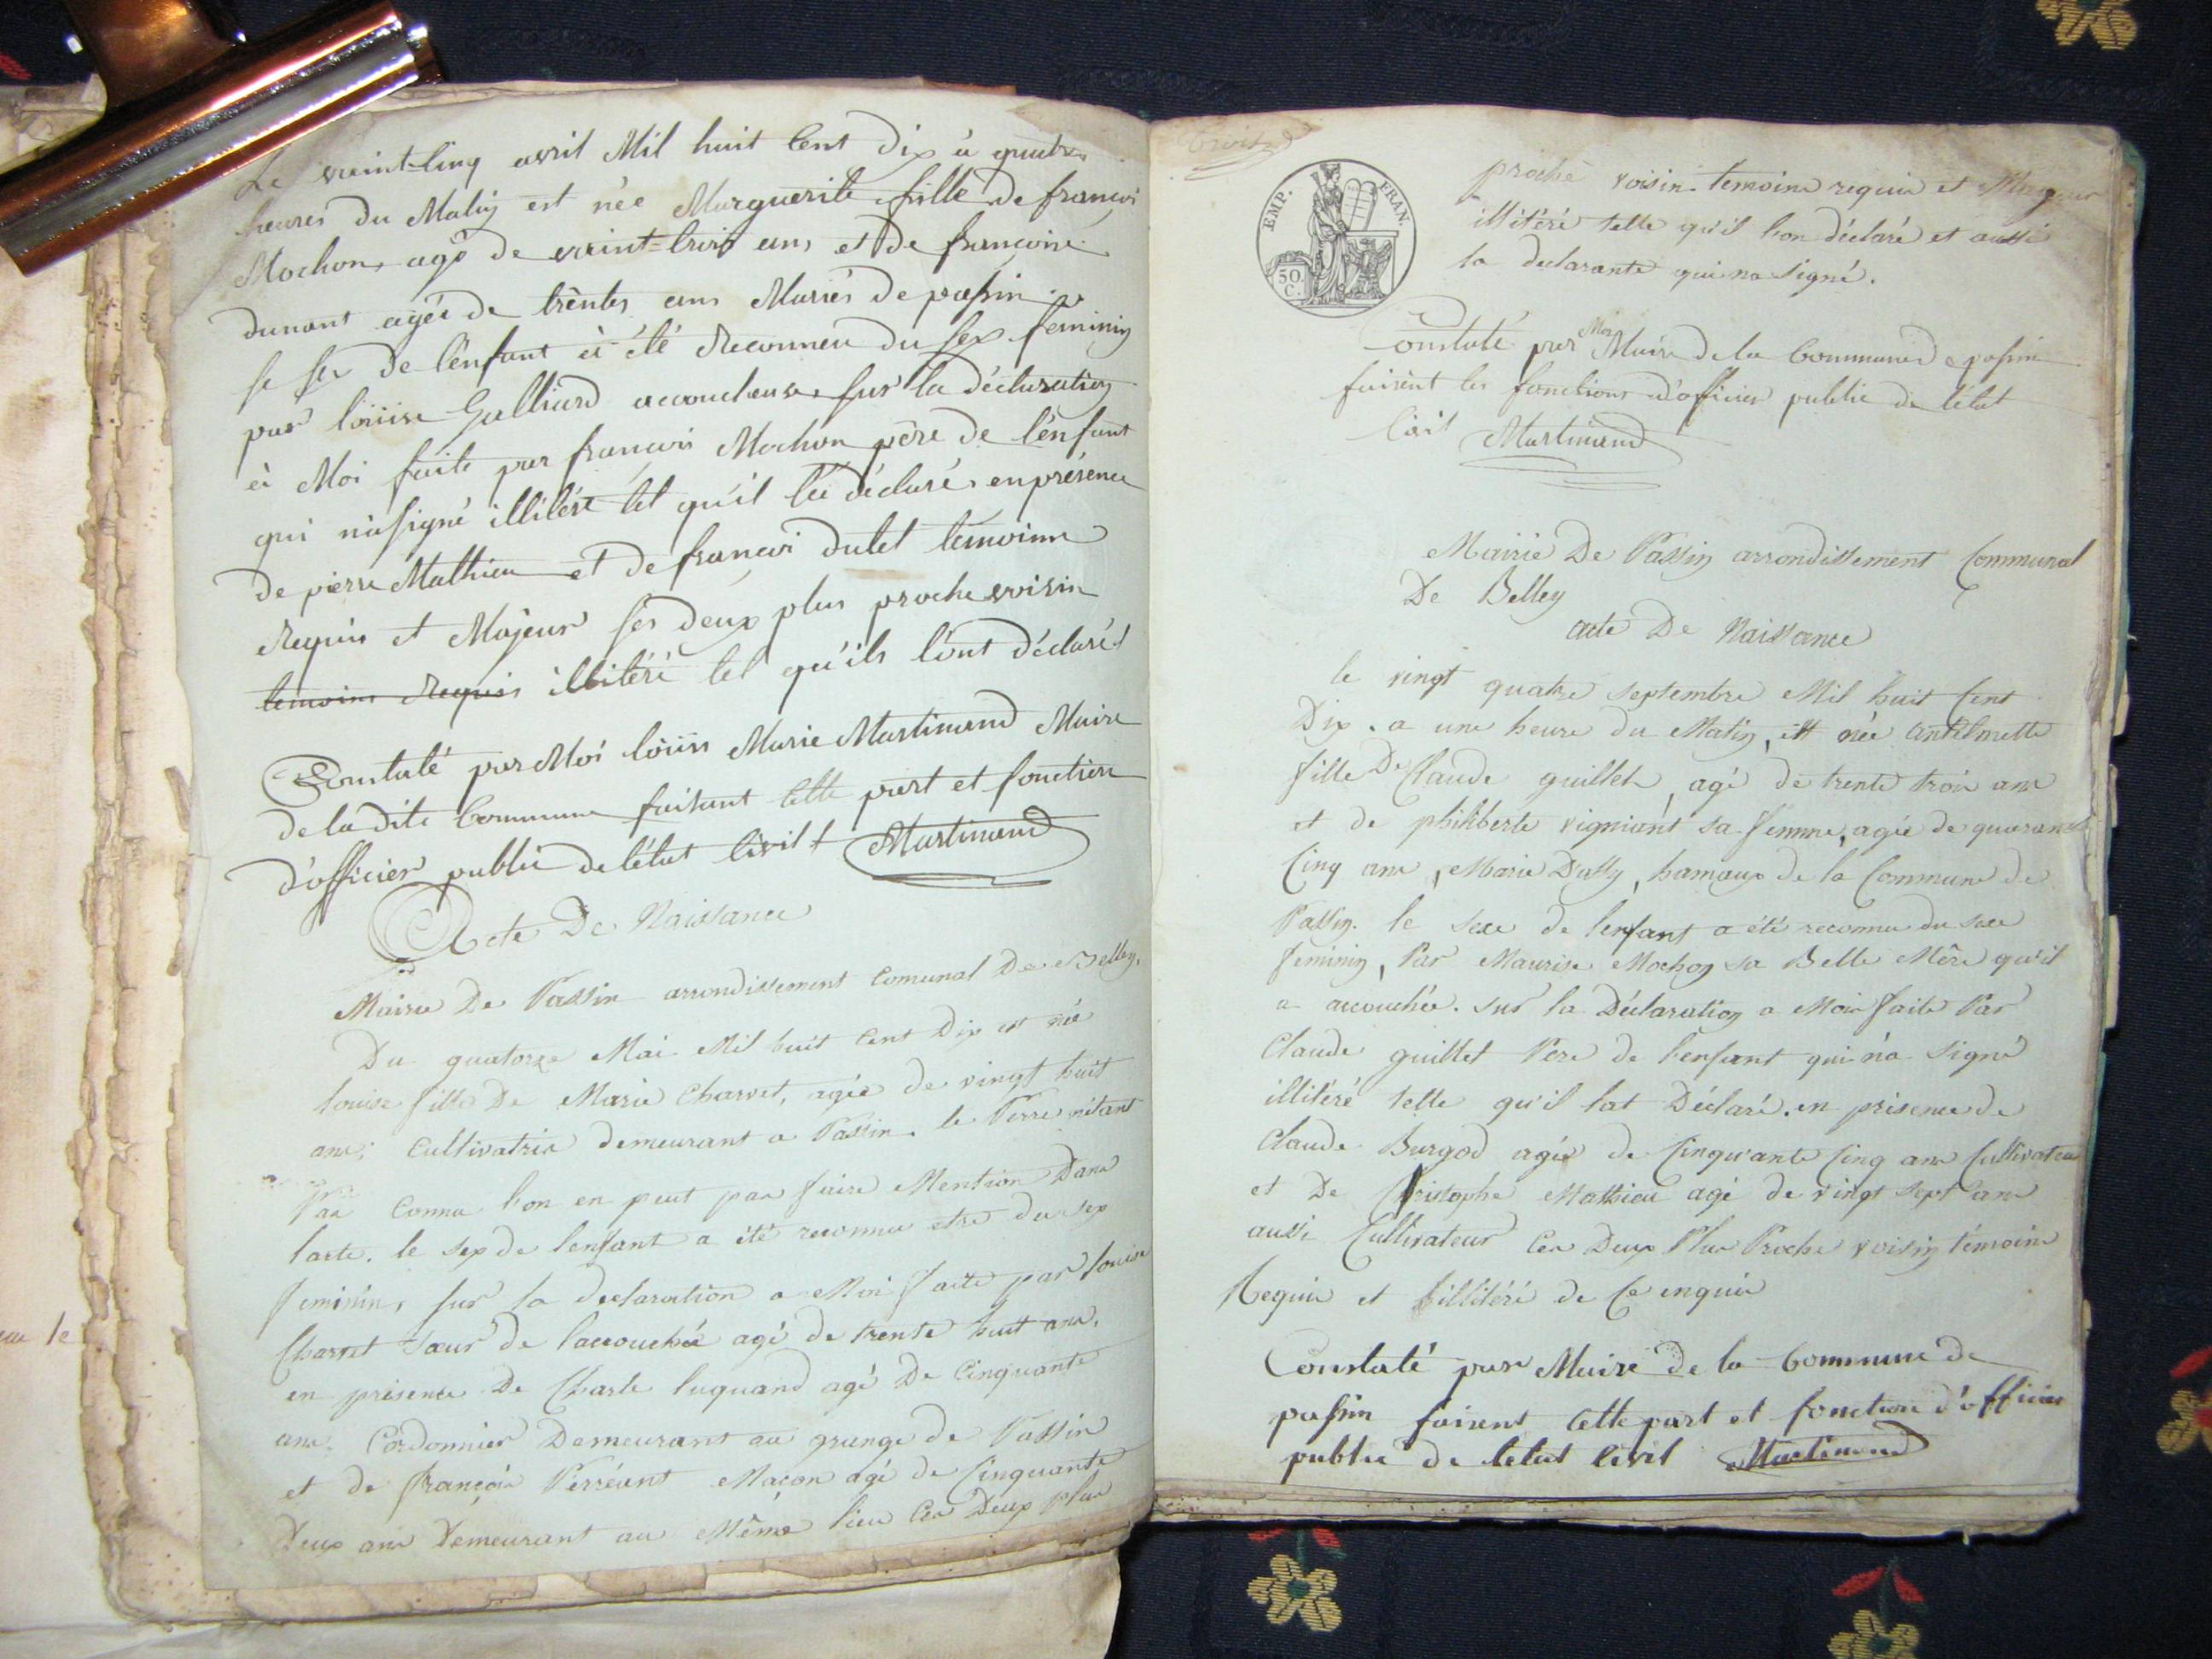 Le vaint-cinq avril Mil huit Cent Dix à quatres
heures du Matin est née Marguerite fille de françois
Mochon, agé de vaint=trois ans et de françoise
dunant agée de trentes ans Mariés de passin.
le sex de l'enfant à été Reconneu du sex feminin
par loüise Galliard accoucheuse, sur la déclaration
à Moi faite par françois Mochon père de l'enfant
qui n'a signé illitéré tel qu'il la déclaré, en présence
de pierre Mathieu et de françois dulet temoins
Requis et Majeur ses deux plus proche voisin
temoins Requis illitéré tel qu'ils l'ont déclarés
Constaté par Moi loüis Marie Martinand Maire
de la dite Commune faisant cette part et fonction
d'officier public de l'état Civil Martinand
Acte De Naissance
Mairie De Passin arrondissement Comunal De Belley.
Du quatorze Mai Mil huit Cent Dix est née
louise fille De Marie Charvet, agée de vingt huit
ans; Cultivatrice demeurant a Passin. le Perre nétant
Pas Connu l'on en peut pas faire Mention Dans
lacte. le sex de lenfant a été reconnu etre du sex
feminin, sur la declaration a Moi faite par louise
Charvet sœur de laccouchée agé de trente huit ans.
en présence De Charle luquand agé De Cinquante
ans. Cordonnier Demeurant au grange de Passin
et de françois Perréant Maçon agé de Cinquante
deux ans Demeurant au Même lieu Ces Deux plus
EMP. FRAN.
50
C.
proche voisin temoins requis et Majeur
illitéré telle qu'il l'on déclaré et aussi
la declarante qui na signé.
Constaté par Moi Maire de la Commune de passin
faisent les fonctions d'officier public de l'état
Civil Martinand
Mairie De Passin arrondissement Communal
De Belley
acte De Naissance
le vingt quatre septembre Mil huit Cent
Dix. a une heure du Matin, est née antelmette
fille De Claude guillet, agé de trente trois ans
et de philiberte vigniant sa femme, agée de quarante
Cinq ans, Marie Dassy, hamaux de la Commune de
Passin. le sexe de lenfant a été reconnu du sexe
feminin, Par Maurise Mochon sa Belle Mère qu'il
a accouchée. sur la Déclaration a Moi faite Par
Claude guillet Pere de l'enfant qui n'a signé
illitéré telle qu'il lat Déclaré. en présence de
Claude Burgod agée de Cinquante Cinq ans Cultivateur
et De Christophe Mathieu agé de vingt sept ans
aussi Cultivateur Ces Deux Plus Proche voisin témoins
Requis et illitéré de Ce enquis
Constaté par Maire de la Commune de
passin faisent cette part et fonction d'officier
public de l'etat Civil Martinand